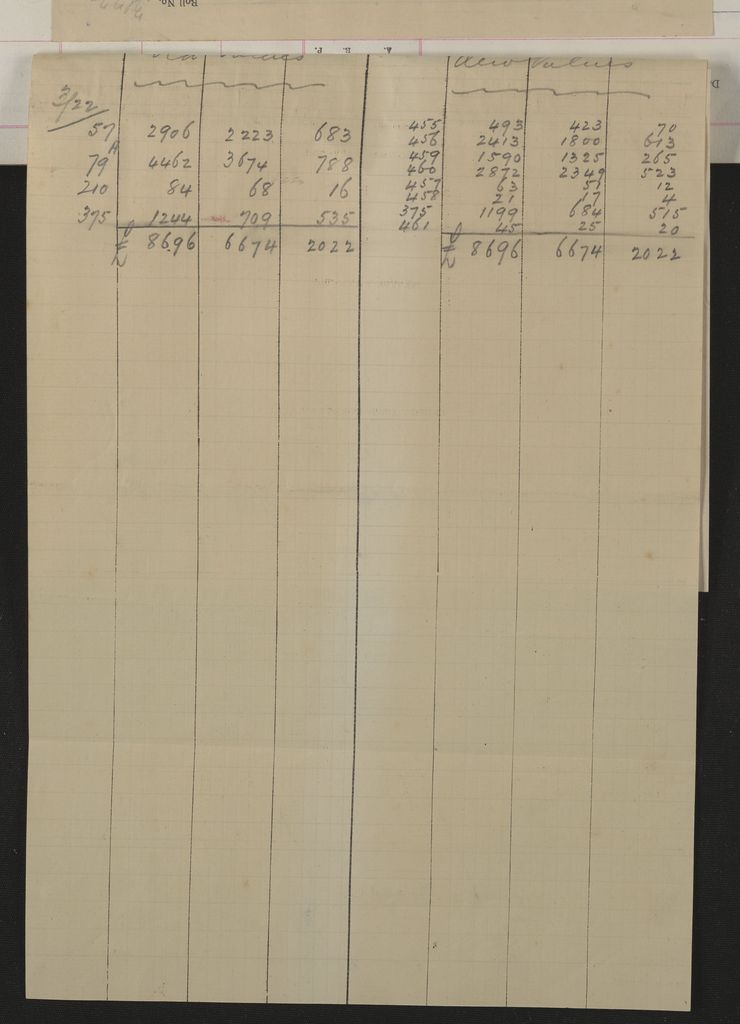 Roll No.
A. R. P.
Old Values New Values
3/22
57 2906 2223 683 455 493 423 70
A 456 2413 1800 613
79 4462 3674 788 459 1590 1325 265
460 2872 2349 523
210 84 68 16 457 63 51 12
458 21 17 4
375 1244 709 535 375 1199 684 515
461 45 25 20
£ 8696 6674 2022 £ 8696 6674 2022